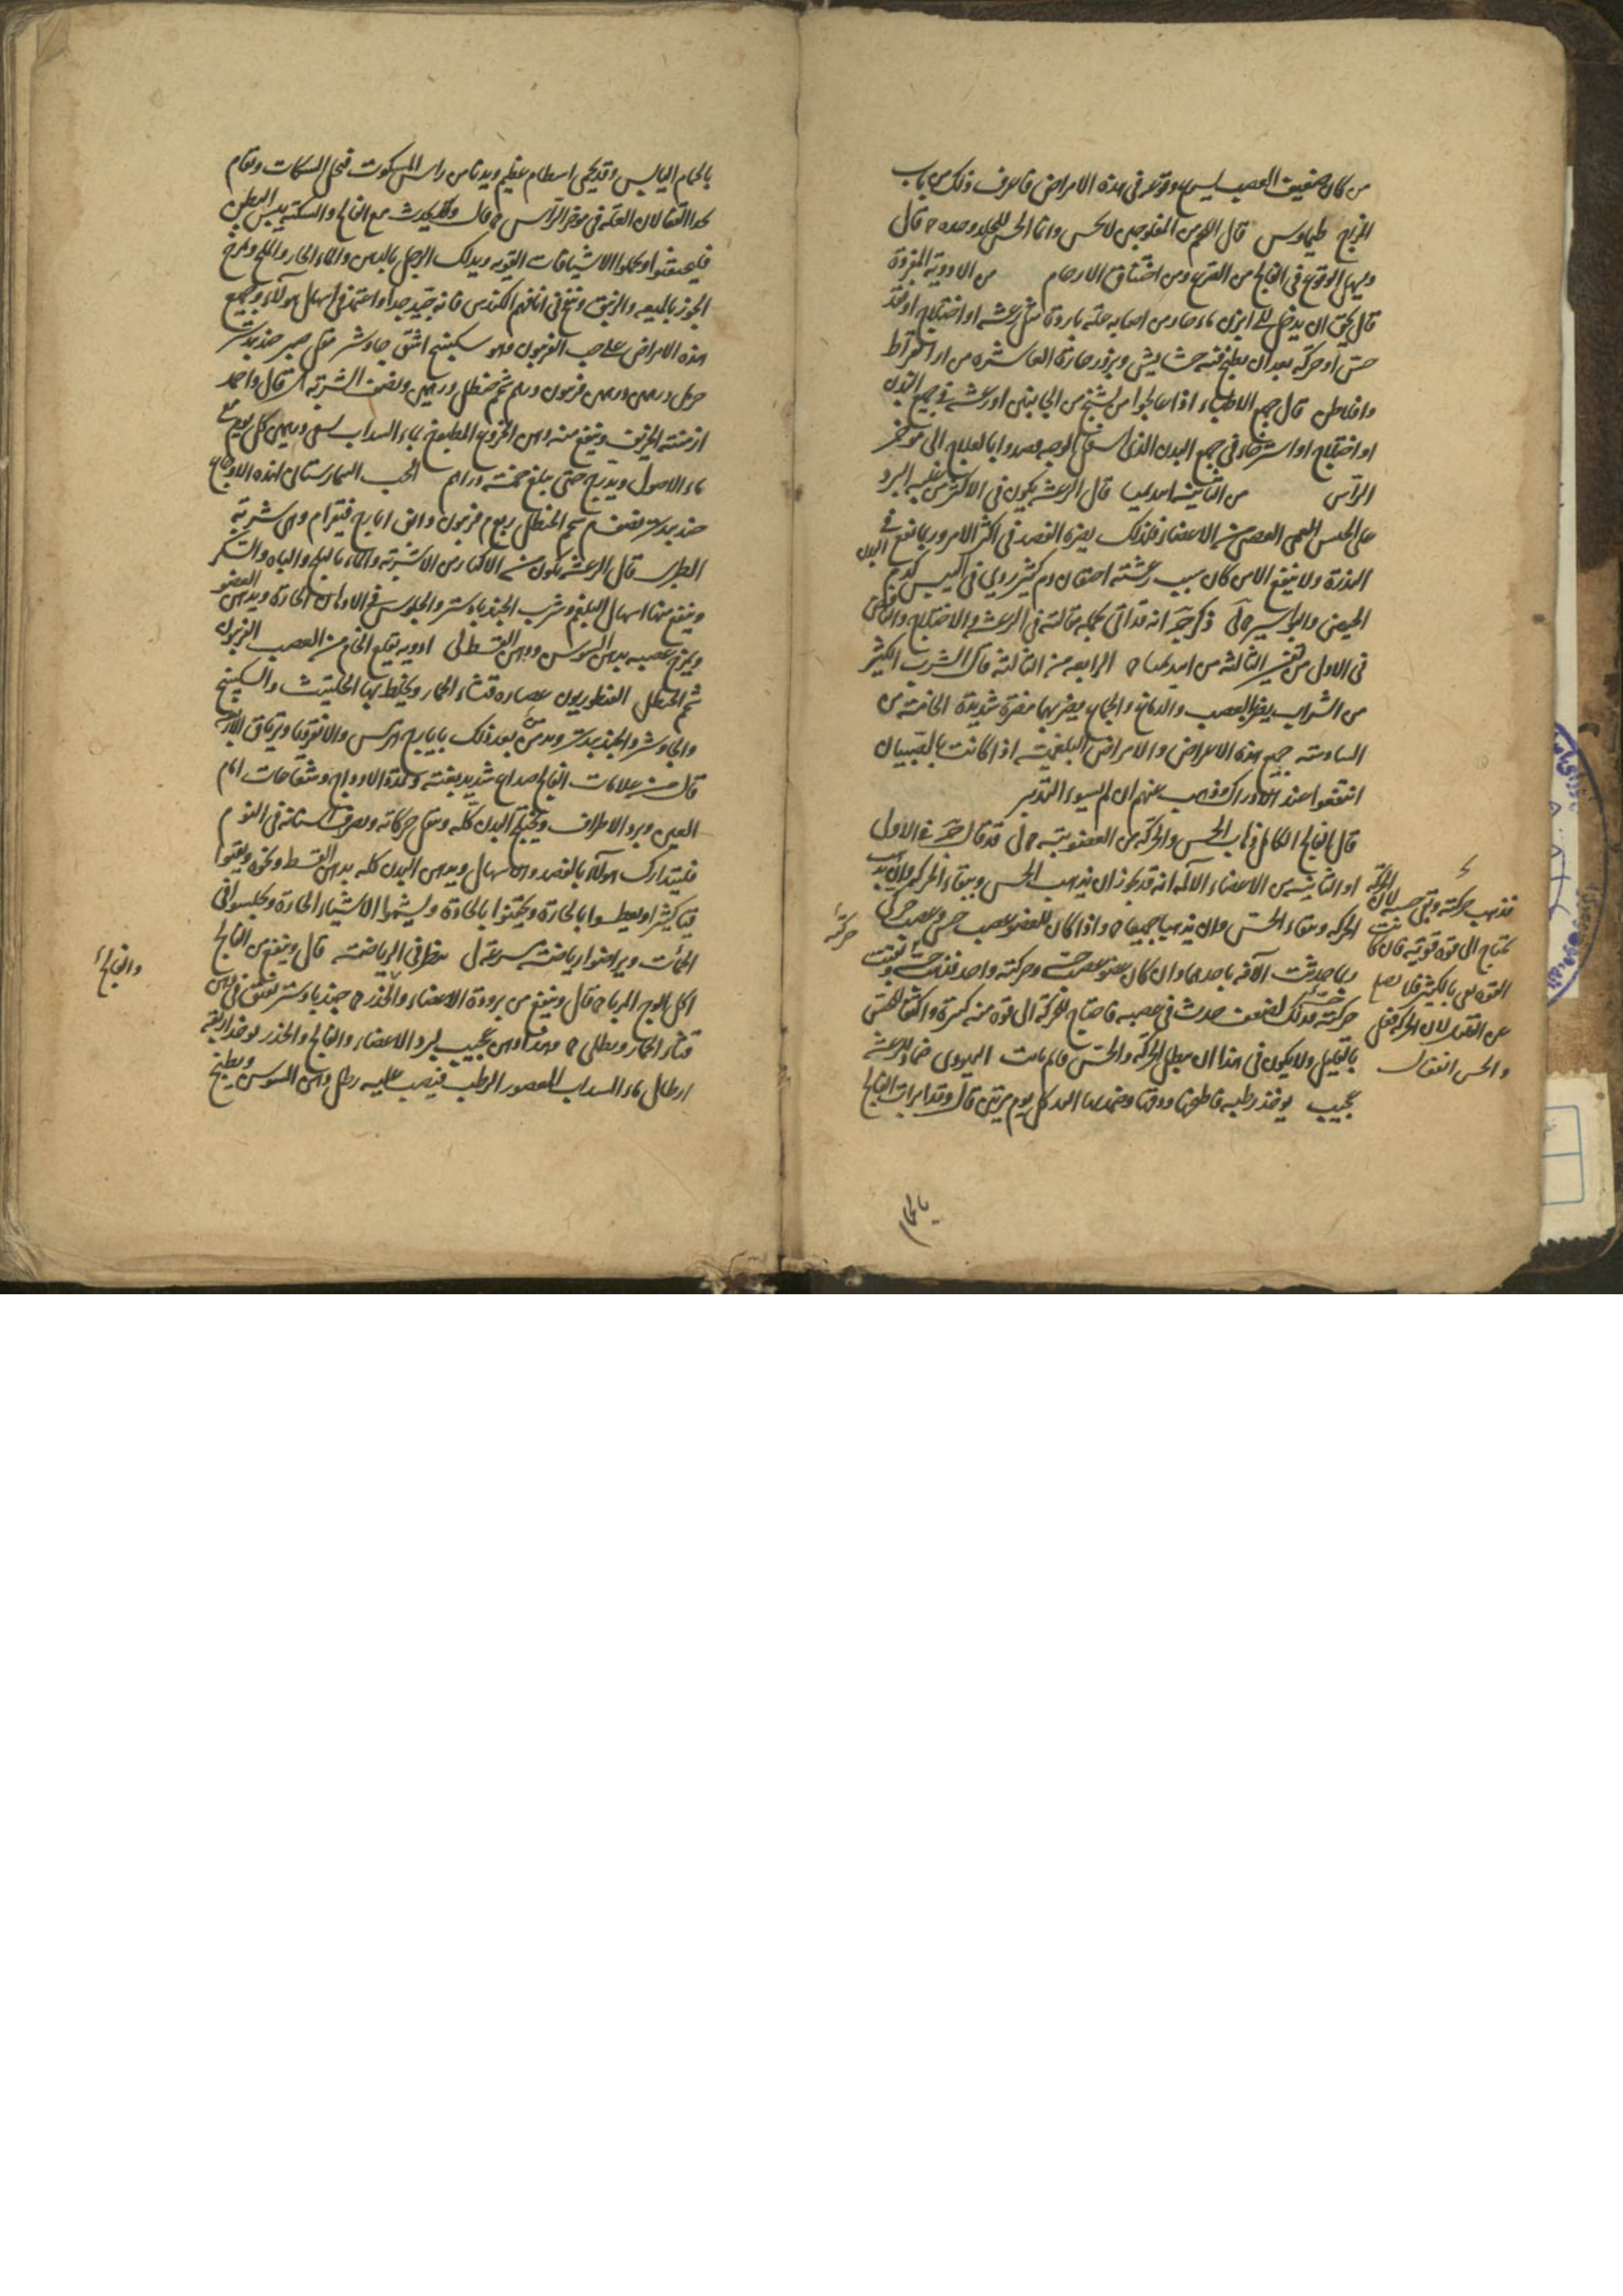 من كان ضعيف العصب يسرع وقوعه فى هذه الامراض فاعرف ذلك من باب
المزاج طيماوس قال اللحم من المفلوجين لا يحس وانما الحس للجلد وحده قال
ويسهل الوقوع فى الفالج من الصرع ومن اختناق الارحام من الادوية المفردة
قال يحق ان يدخل فى ابزن ماء حار من اصابه علة باردة مثل رعشة او اختلاج او فقد
حس او حركة بعد ان يطبخ فيه حشايش وبزور حارة العاشرة من اراء بقراط
وافلاطن قال جميع الاطباء اذا عالجوا من تشنج من الجانبين او رعشة فى جميع البدن
او اختلاج او استرخاء فى جميع البدن الذى اسفل الوجه قصدوا بالعلاج الى مؤخر
الراس من الثانية ابيديميا قال الرعشة يكون فى الاكثر من غلبة البرد
على الجنس العصبى من الاعضاء فلذلك يضره الفصد فى اكثر الامر وربما نفع فى
الندرة ولا ينفع الا من كان سبب رعشته احتقان دم كثير ردى فى البدن ليس كدم
الحيض والبواسير لى ذكر ج انه قد اتى بكلمه مقالته فى الرعشة والاختلاج والنافض
فى الاول من تفسير الثالثة من ابيديميا الرابعة من الثالثة قال الشرب الكثير
من الشراب يضر بالعصب والدماغ والجماع يضر بهما مضرة شديدة الخامسة من
السادسة جميع هذه الاعراض والامراض البلغمية اذا كانت بالصبيان
انتفعوا عند الادراك وذهب عنهم ان لم يسوء التدبير
قال الفالج الكامل ذهاب الحس والحركة من العضو بتة لى قد قال ج فى الاول
او الثانية من الاعضاء الآلمة انه قد يجوز ان يذهب الحس ويبقاء الحركة وان يذهب
الحركة ويبقاء الحس وان يذهبا جميعا واذا كان للعضو عصب حس وعصب حركة
ربما حدثت الآفة باحدهما وان كان عضو عصب حسه وحركته واحد فذهب حسه وبقيت
حركته فذلك لضعف حدث فى عصبه فاحتاج للحركة الى قوة منه كثيرة واكتفى الحس
بالقليل ولا يكون فى هذا ان يبطل الحركة والحس قائم ثابت اليهودى ضماد للرعشة
عجيب يوخذ رطبة فاطبخها ودقها وضمد بها اليد كل يوم مرتين قال وقد ابرات الفالج
الحركة
فذهب حركته وبقى حسه لان
تحتاج الى قوة قوية فان كانت
عن الفعل لان الحركة فعل
والحس انفعال
حركة
بالحمام
بالحمام اليابس وقد يحمى اسطام عظيم ويدنا من راس المسكوت فيحل السكات ويقام
بحذا القفا لان العلة فى موخر الراس قال وقد يحدث مع الفالج والسكتة يبس البطن
فليحقنوا او يحملوا الاشيافات القوية ويدلك الرجل بالدهن والماء الحار والملح ويمرخ
الخرز بالميعه والزنبق وينفخ فى انافهم الكندس فانه جيد جدا واعتمد فى اسهال هولاء وجميع
هذه الامراض على حب الفربيون وهو سكبينج اشق جاوشير مقل صبر جندبيدستر
حرمل درهمين درهمين فربيون درهم شحم حنظل درهمين ونصف الشربة مثقال واحد
ازمنته الخريف وينفع منه دهن الخروع المطبوخ بماء السداب يسقى درهمين كل يوم مع
ماء الاصول ويدرج حتى يبلغ خمسة دراهم الحب البيمارستانى لهذه الاوجاع
جندبيدستر نصف شحم الحنظل ربع درهم فربيون دانق ايارج فيقرا درهم وهى شربة
الطبرى قال الرعشة تكون من الاكثار من الاشربة والماء بالثلج والباه والسكر
وينفع منها اسهال البلغم وشرب الجندبادستر والجلوس فى الادهان الحارة ويدهن العضو
ويمرخ عصبه بدهن السوسن ودهن القسط لى ادوية يقلع الخام من العصب الفربيون
شحم الحنظل القنطوريون عصارة قثاء الحمار ويخلط بها الحلتيت والسكبينج
والجاوشير والجندبيدستر ويدمن بعد ذلك بايارج هرمس والانقرديا وترياق الاربعة
قال من علامات الفالج صداع شديد بغتة وتمدد الاوداج وشعاعات امام
العين وبرد الاطراف ويختلج البدن كله ويثقل حركاته وصرف اسنانه فى النوم
فليتدارك هولاء بالفصد والاسهال ويدهن البدن كله بدهن القسط ونحوه ويقيوا
قيئا كثيرا ويعطسوا بالحارة ويحقنوا بالحادة وليشموا الاشياء الحارة ويجلسوا فى
الحمات ويراضوا رياضة سرعة لى ينظر فى الرياضة قال وينفع من الفالج
اكل الوج المربا قال وينفع من برودة الاعضاء والخدر جندبادستر يفتق فى دهن
قثاء الحمار ويطلى وهذا دهن عجيب لبرد الاعضاء والفالج والخدر يوخذ اربعة
ارطال ماء السداب المعصور الرطب فيصب عليه رطل دهن السوسن ويطبخ
والفالج